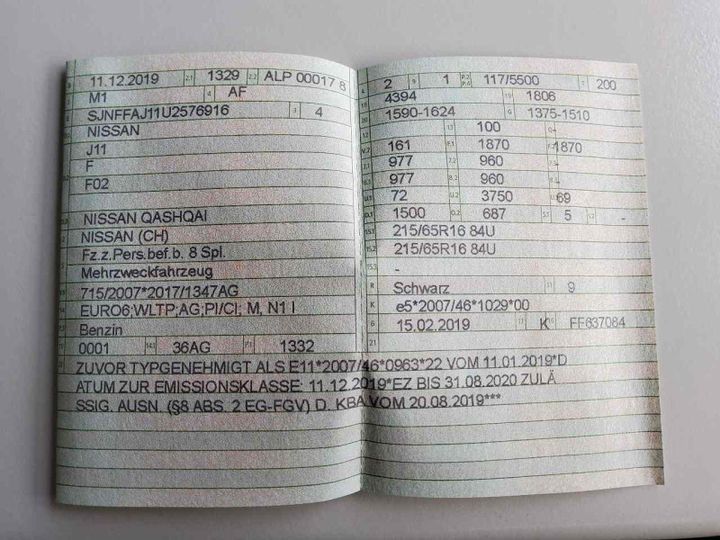 11.12.2019 1329 ALP 00017 8
M1 AF
SJNFFAJ11U2576916 4
NISSAN
J11
F
F02
NISSAN QASHQAI
NISSAN (CH)
Fz.z.Pers.bef.b. 8 Spl.
Mehrzweckfahrzeug
715/2007*2017/1347AG
EURO6;WLTP;AG;PI/CI; M, N1 I
Benzin
0001 36AG 1332
2 1 117/5500 200
4394 1806
1590-1624 1375-1510
100 -
161 1870 1870
977 960 -
977 960 -
72 3750 69
1500 687 5 -
215/65R16 84U
215/65R16 84U
-
Schwarz 9
e5*2007/46*1029*00
15.02.2019 K FF637084
ZUVOR TYPGENEHMIGT ALS E11*2007/46*0963*22 VOM 11.01.2019*D
ATUM ZUR EMISSIONSKLASSE: 11.12.2019*EZ BIS 31.08.2020 ZULÄ
SSIG. AUSN. (§8 ABS. 2 EG-FGV) D. KBA VOM 20.08.2019***